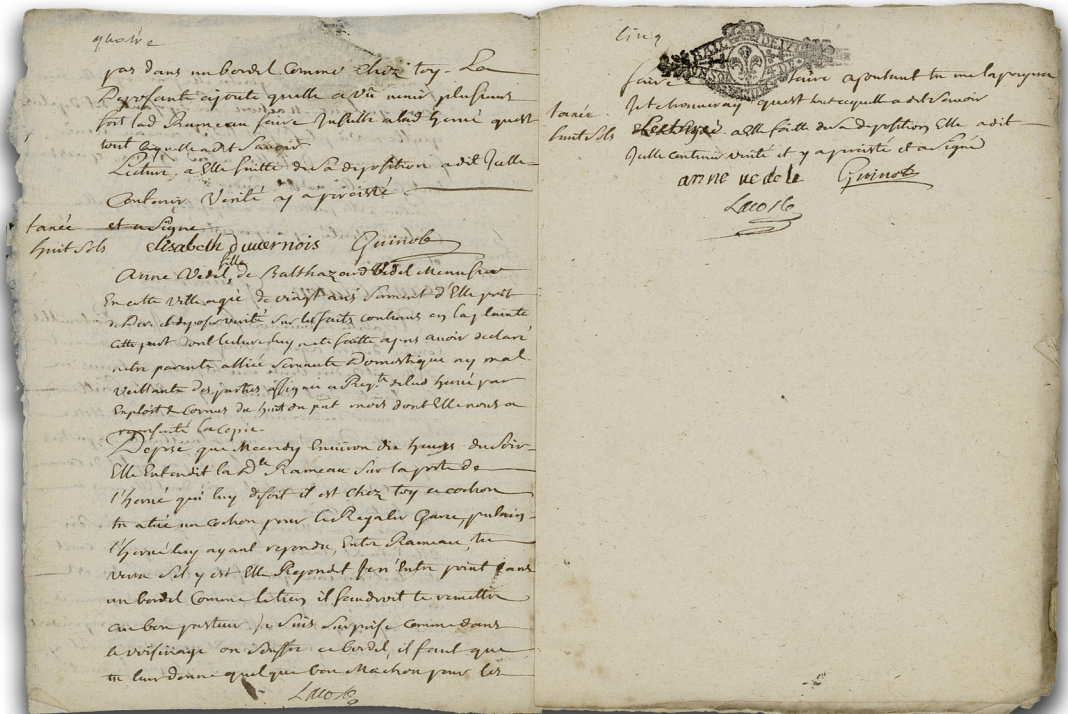 quatre
pas dans un bordel Comme chez toy. La
Deposante ajoute quelle a vû venir plusieurs
fois lad Rameau faire Insulte alad herué quest
tout ce quelle a dit Savoir
Lecture a elle faitte de Sa deposition a dit Icelle
Contenir Verité a y a percisté
taxée et a Signé
huit Sols elizabeth duvernois Guinob
fille
Anne Vedel, de Balthazard Vedel Menusier
En cette ville agée de vingt ans Serment d'Elle prêt
de Dire et deposer verité Sur les faits contenus en la plainte
Cette part dont lecture luy a ete faitte apres avoir declaré
netre parente alliée Servante Domestique ny mal
veillante des parties assignée a Reqte de lad herué par
Exploit de Cornus du huit du pnt mois dont Elle nous a
representé la Copie.
Depose que Mecredy Environ dix heures du Soir
Elle Entendit la Dlle Rameau Sur la porte de
l'herué qui luy disoit il est chez toy ce cochon
tu a tué un cochon pour le Regaler Garce, putain
l'herué luy ayant repondu, Entre Rameau, tu
verra S'il y est Elle Repondit Je n'Entre point dans
un bordel Comme le tien il faudroit te remettre
au bon pasteur, Je Suis Surprise comme dans
le voisinage on Souffre ce bordel, il faut que
tu leur donne quelque bon Machon pour les
Lacoste
Cinq
faire taire ajoutant tu me la payera
Je te trouveray quest tout ce quelle a dit Savoir
taxée
huit Sols Lecture a elle faitte de Sa deposition Elle a dit
Icelle Contenir verité et y a percisté et a Signé
anne vedele Guinob
Lacoste